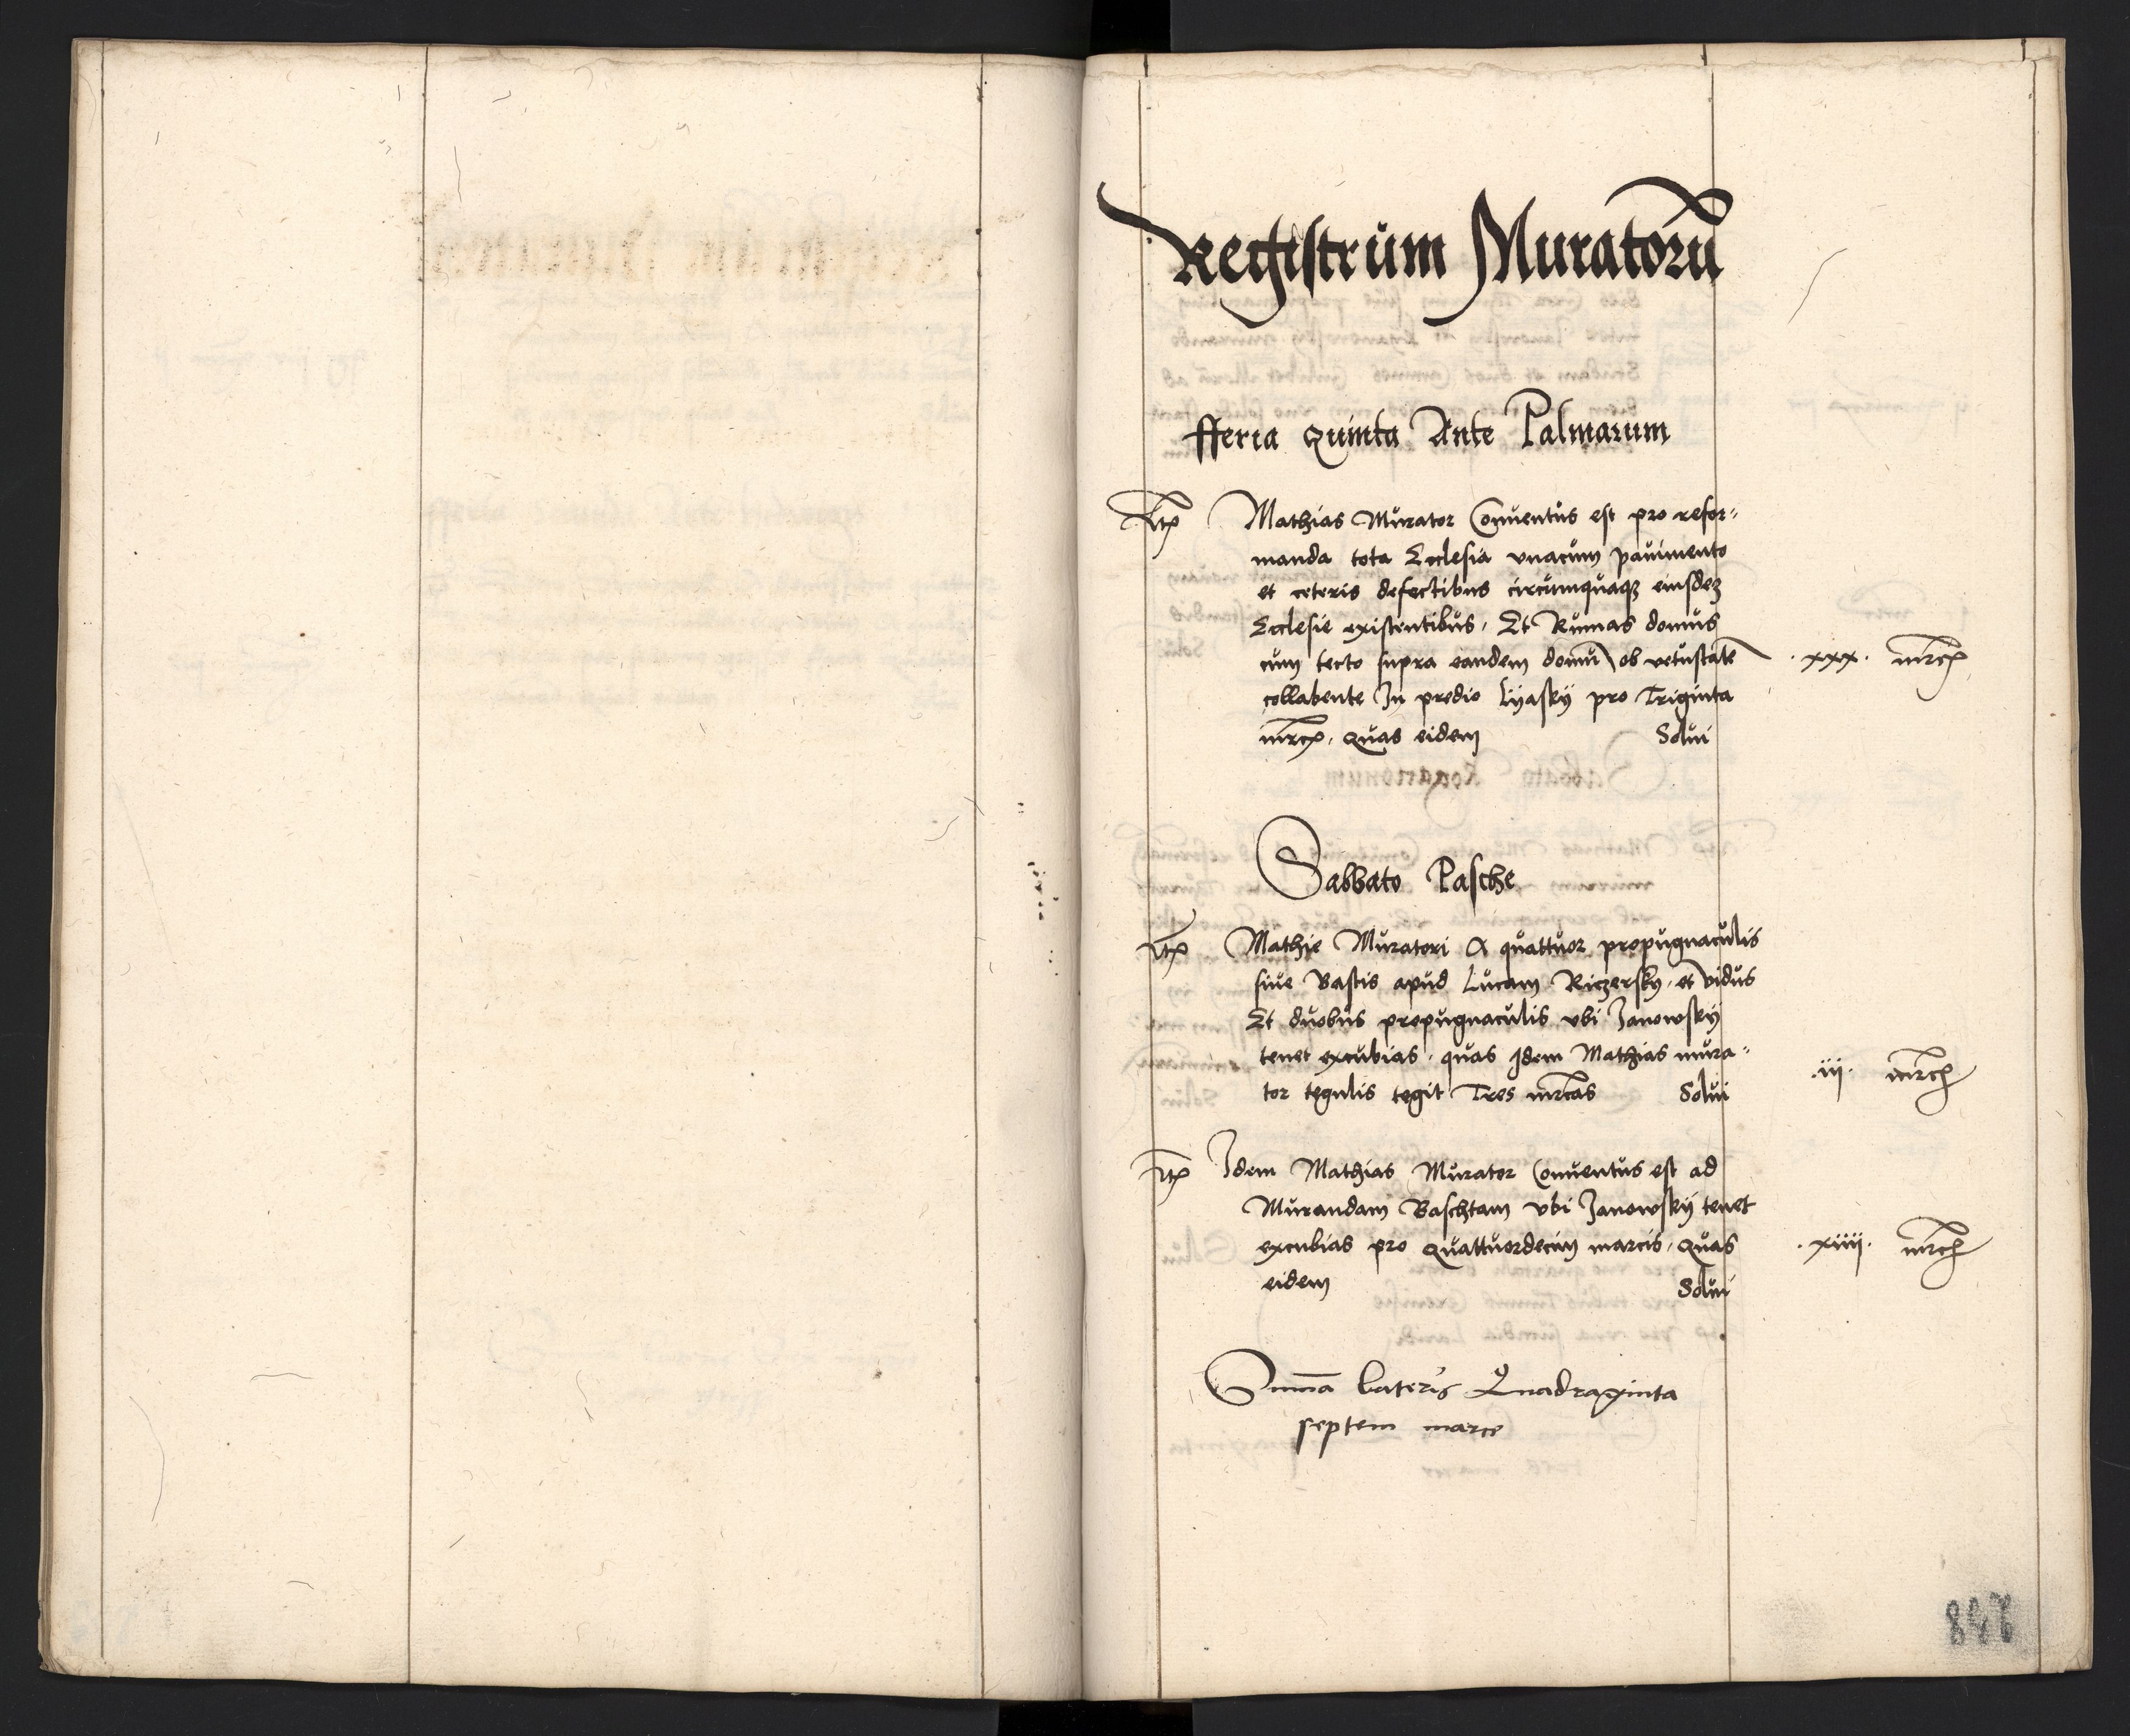 Registrum Muratorū
fferia Quinta Ante Palmarum
Itē Mathias Murator Conuentus est pro refor-
manda tota Ecclesia vnacum pauimento
et ceteris defectibus circumquaqꝫ eiusdeꝫ
Ecclesie existentibus, Et Ruinas domus
cum tecto supra eandem domū ob vetustatē .xxx. mrcꝭ
collabente In predio Lyasky pro Triginta
mrcꝭ, quas eidem Solui
Sabbato Pasche
Itē Mathie Muratori A quattuor propugnaculis
siue Bastis apud Lucam Riczersky, et vidus
Et duobus propugnaculis vbi Janowsky
tenet excubias, quas Idem Mathias mura-
tor tegulis tegit Tres mrcas Solui .iij. mrcꝭ
Itē Idem Mathias Murator Conuentus est ad
Murandam Baschtam vbi Janowsky tenet
excubias pro quattuordecim marcis, quas .xiiij. mrcꝭ
eidem Solui
Summa lateris Quadraginta
septem marce